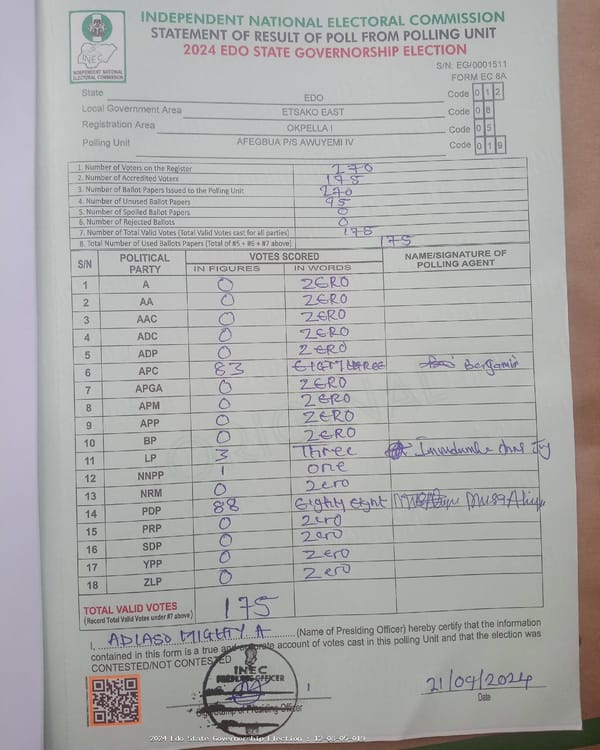 INDEPENDENT NATIONAL ELECTORAL COMMISSION
STATEMENT OF RESULT OF POLL FROM POLLING UNIT
2024 EDO STATE GOVERNORSHIP ELECTION
INEC
INDEPENDENT NATIONAL
ELECTORAL COMMISSION
S/N: EG/0001511
FORM EC 8A
State EDO Code 0 1 2
Local Government Area ETSAKO EAST Code 0 8
Registration Area OKPELLA I Code 0 5
Polling Unit AFEGBUA P/S AWUYEMI IV Code 0 1 9
1. Number of Voters on the Register 270
2. Number of Accredited Voters 175
3. Number of Ballot Papers Issued to the Polling Unit 270
4. Number of Unused Ballot Papers 95
5. Number of Spoiled Ballot Papers 0
6. Number of Rejected Ballots 0
7. Number of Total Valid Votes (Total Valid Votes cast for all parties) 175
8. Total Number of Used Ballots Papers (Total of #5 + #6 + #7 above) 175
S/N POLITICAL PARTY VOTES SCORED NAME/SIGNATURE OF POLLING AGENT
IN FIGURES IN WORDS
1 A 0 ZERO
2 AA 0 ZERO
3 AAC 0 ZERO
4 ADC 0 ZERO
5 ADP 0 ZERO
6 APC 83 EIGTYTHREE Benjamin
7 APGA 0 ZERO
8 APM 0 ZERO
9 APP 0 ZERO
10 BP 0 ZERO
11 LP 3 Three
12 NNPP 1 one
13 NRM 0 zero
14 PDP 88 Eighty Eight Musa Aliyu
15 PRP 0 zero
16 SDP 0 zero
17 YPP 0 zero
18 ZLP 0 zero
ORIGINAL
TOTAL VALID VOTES 175
(Record Total Valid Votes under #7 above)
I, ADIASO MIGHTY A (Name of Presiding Officer) hereby certify that the information
contained in this form is a true and accurate account of votes cast in this polling Unit and that the election was
CONTESTED/NOT CONTESTED
INEC
PRESIDING OFFICER
Sign/Stamp of Presiding Officer
21/09/2024
Date
2024 Edo State Governorship Election : 12-08-05-019